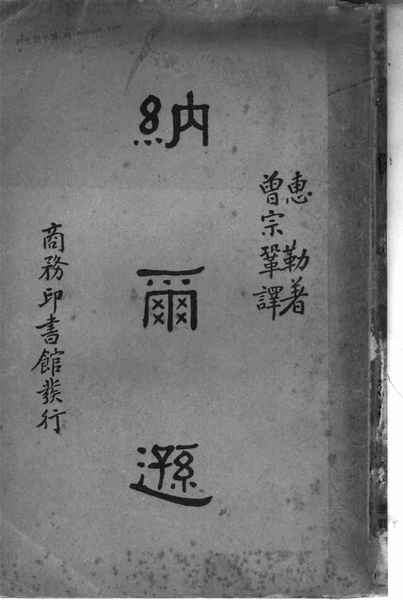 惠勒著
曾宗鞏譯
納爾遜
商務印書館發行